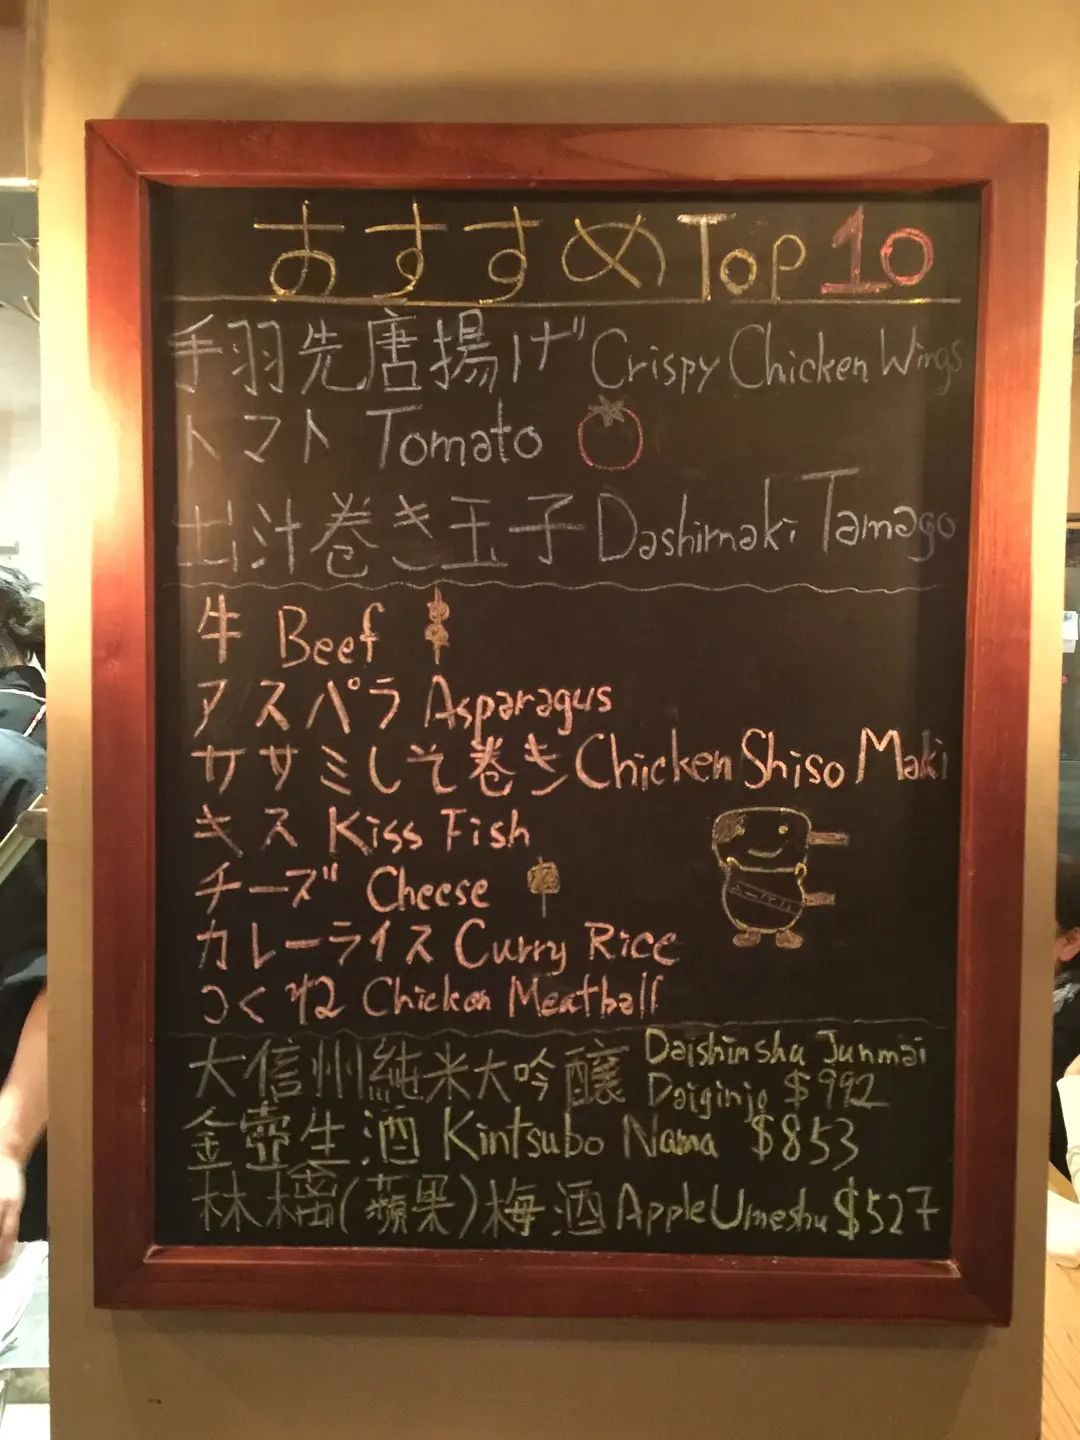 おすすめ Top 10
手羽先唐揚げ Crispy Chicken Wings
トマト Tomato
出汁巻き玉子 Dashimaki Tamago
牛 Beef
アスパラ Asparagus
ササミしそ巻き Chicken Shiso Maki
キス Kiss Fish
チーズ Cheese
カレーライス Curry Rice
つくね Chicken Meatball
大信州純米大吟醸 Daishinshu Junmai
Daiginjo $992
金壷生酒 Kintsubo Nama $853
林檎(蘋果)梅酒 Apple Umeshu $527